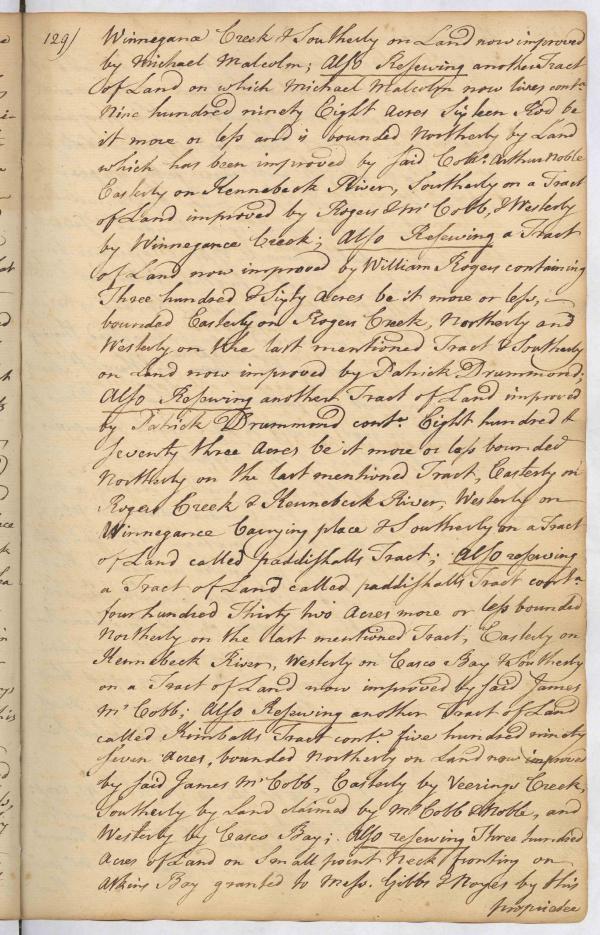 129/
Winnegance Creek & Southerly on Land now improved
by Michael Malcolm; Also Reserving another Tract
of Land on which Michael Malcolm now lives contg.
Nine hundred ninety Eight Acres Sixteen Rod be
it more or less and is bounded Northerly by Land
which has been improved by said Collo. Arthur Noble
Easterly on Kennebeck River, Southerly on a Tract
of Land improved by Rogers & McCobb, & Westerly
by Winnegance Creek; Also Reserving a Tract
of Land now improved by William Rogers containing
Three hundred & Sixty Acres be it more or less,
bounded Easterly on Rogers Creek, Northerly and
Westerly on the last mentioned Tract & Southerly
on Land now improved by Patrick Drummond;
Also Reserving another Tract of Land improved
by Patrick Drummond contg. Eight hundred &
seventy three Acres be it more or less bounded
Northerly on the last mentioned Tract, Easterly on
Rogers Creek & Kennebeck River, Westerly on
Winnegance Carrying place & Southerly on a Tract
of Land called paddishalls Tract; Also reserving
a Tract of Land called paddishalls Tract contg.
four hundred Thirty two Acres more or less bounded
Northerly on the last mentioned Tract, Easterly on
Kennebeck River, Westerly on Casco Bay & Southerly
on a Tract of Land now improved by said James
McCobb; Also Reserving another Tract of Land
called Kimballs Tract contg. five hundred ninety
seven Acres, bounded Northerly on Land now improved
by said James McCobb, Easterly by Veerings Creek,
Southerly by Land claimed by McCobb & Noble, and
Westerly by Casco Bay; Also reserving Three hundred
Acres of Land on Small point Neck fronting on
Atkins Bay granted to Mess. Gibbs & Noyes by this